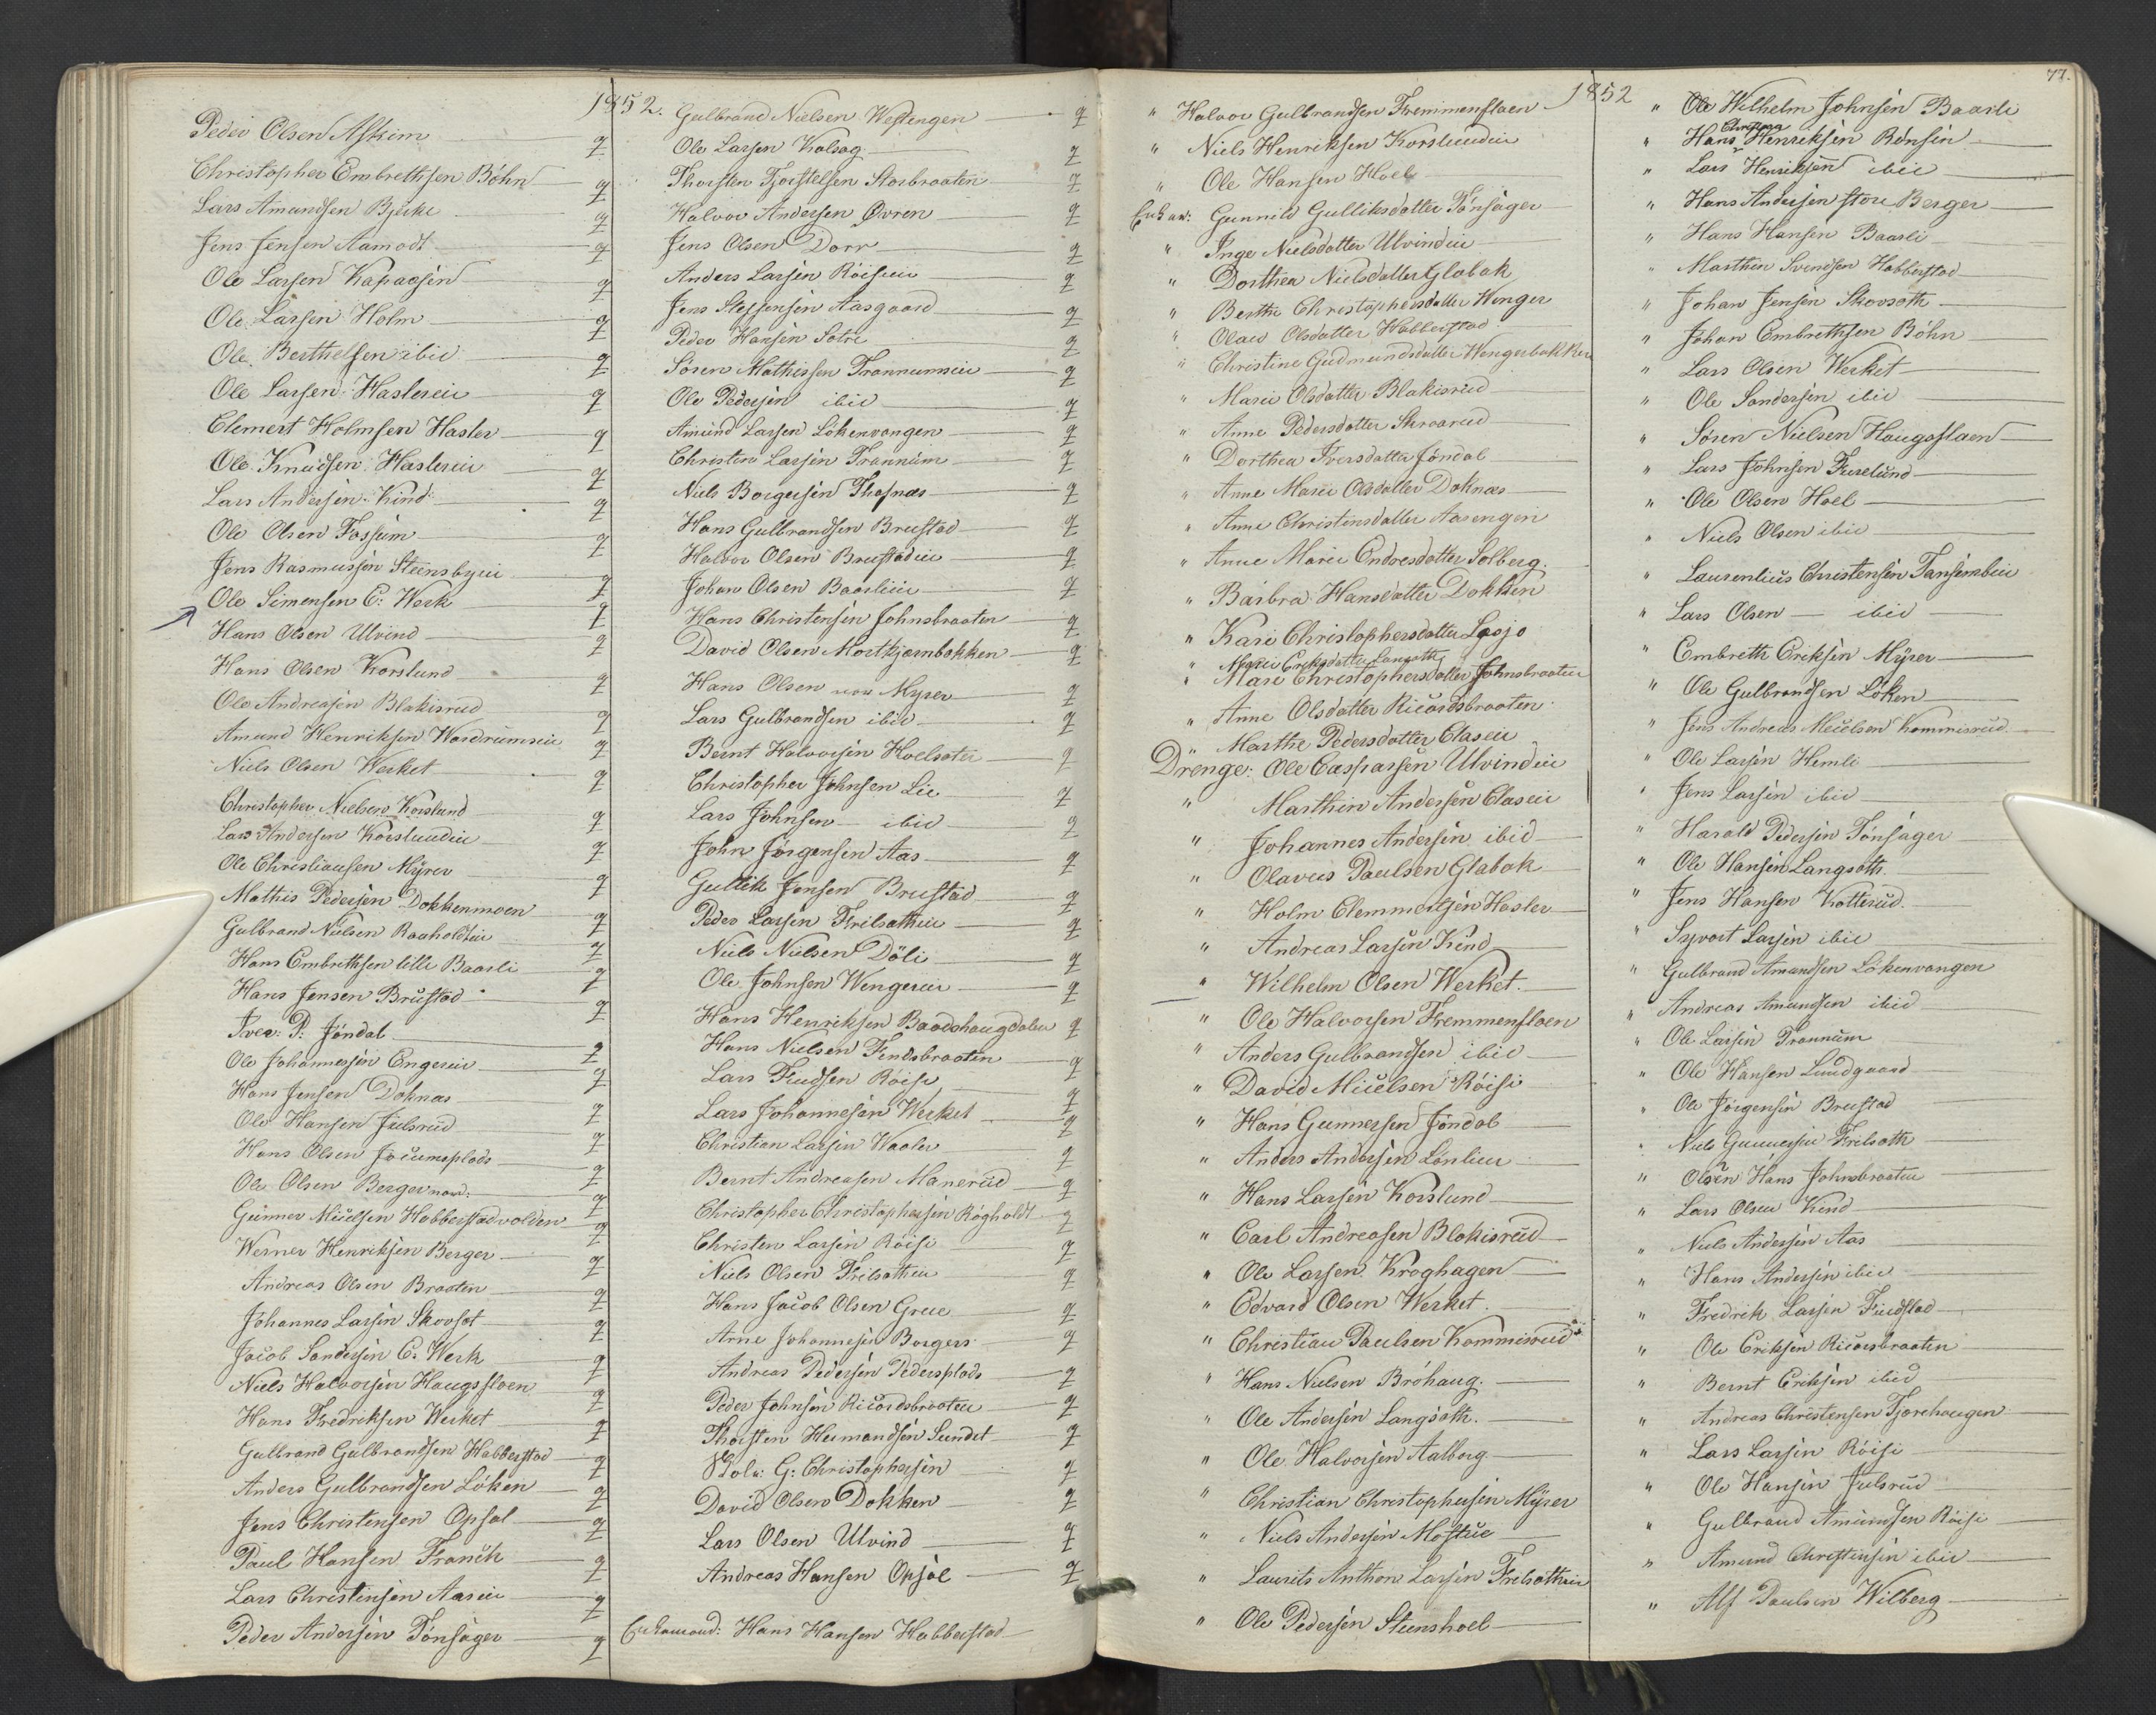 1852.
Peder Olsen Askim q
Christopher Embrethsen Böhn q
Lars Amundsen Bjerke q
Jens Jensen Aamodt q
Ole Larsen Kapaasen q
Ole Larsen Holm q
Ole Berthelsen ibid q
Ole Larsen Haslereie q
Clemert Holmsen Hasler q
Ole Knudsen Haslereie q
Lars Andersen Kind q
Ole Olsen Fossum q
Jens Rasmussen Steensbyeie q
Ole Simensen E: Werk q
Hans Olsen Ulvind q
Hans Olsen Korslund q
Ole Andreasen Blakisrud q
Amund Henriksen Wardrumseie q
Niels Olsen Werket q
Christopher Nielsen Korslund q
Lars Andersen Korslundeie q
Ole Christiansen Myrer q
Mathis Pedersen Dokkenmoen q
Gulbrand Nielsen Raaholdteie q
Hans Embrethsen lille Baarli q
Hans Jensen Brustad q
Iver: P: Jöndal q
Ole Johannesen Engereie q
Hans Jensen Doknæs q
Ole Hansen Julsrud q
Hans Olsen Jocumsplads q
Ole Olsen Berger nord: q
Gunner Micelsen Habberstadvolden q
Werner Henriksen Berger q
Andreas Olsen Braaten q
Johannes Larsen Skovsot q
Jacob Sandersen E: Werk q
Niels Halvorsen Haugsfloen q
Hans Fredriksen Werket q
Gulbrand Gulbrandsen Habberstad q
Anders Gulbrandsen Löken q
Jens Christensen Opsal q
Paul Hansen Franch q
Lars Christensen Aaseie q
Peder Andersen Tönsager q
Gulbrand Nielsen Westengen q
Ole Larsen Kolsag q
Thorsten Tjostelsen Storbraaten q
Halvor Andersen Øvren q
Jens Olsen Dorr q
Anders Larsen Röiseie q
Jens Steffensen Aasgaard q
Peder Hansen Sætre q
Sören Mathissen Trannumseie q
Ole Pedersen ibid q
Amund Larsen Lökenvangen q
Christen Larsen Trannum q
Niels Borgersen Thosnæs q
Hans Gulbrandsen Brustad q
Halvor Olsen Brustadeie q
Johan Olsen Baarlieie q
Hans Christensen Johnsbraaten q
David Olsen Mortkjærnbakken q
Hans Olsen nor Myrer q
Lars Gulbrandsen ibid q
Bernt Halvorsen Hoelsæter q
Christopher Johnsen Lie q
Lars Johnsen ibid q
John Jörgensen Aas q
Gullik Jensen Brustad q
Peder Larsen Frilsætheie q
Niels Nielsen Döli q
Ole Johnsen Wengereie q
Hans Henriksen Baadshaugdalen q
Hans Nielsen Findsbraaten q
Lars Frudsen Röise q
Lars Johannesen Werket q
Christian Larsen Waaler q
Bernt Andreasen Manerud q
Christopher Christophersen Rögholdt q
Christen Larsen Röise q
Niels Olsen Frilsætheie q
Hans Jacob Olsen Grue q
Arne Johannesen Borgers q
Andreas Pedersen Pedersplads q
Peder Johnsen Ricardsbraaten q
Thorsten Hermandsen Sundet q
Skole: G: Christophersen q
David Olsen Dokken q
Lars Olsen Ulvind q
Andreas Hansen Opsal q
Enkemænd: Hans Hansen Habberstad
1852
77.
" Halvor Gulbrandsen Fremmenfloen
" Niels Henriksen Korslundeie
" Ole Hansen Hoel
Enker: Gunnild Gulliksdatter Tönsager
" Inge Nielsdatter Ulvindeie
" Dorthea Nielsdatter Glabak
" Berthe Christophersdatter Wenger
" Olaue Olsdatter Habberstad
" Christine Gudmundsdatter Wengerbakken
" Marie Olsdatter Blakisrud
" Anne Pedersdatter Skraarud
" Dorthea Iversdatter Jöndal
" Anne Marie Olsdatter Doknæs
" Anne Christensdatter Aasengen
" Anne Marie Endresdatter Solberg.
" Barbra Hansdatter Dokken
" Kari Christophersdatter Løsjo
" Marie Eriksdatter Langseth
" Mari Christophersdatter Johnsbraaten
" Anne Olsdatter Ricardsbraaten
" Marthe Pedersdatter Elaseie
Drenge: Ole Casparsen Ulvindeie
" Marthin Andersen Elaseie
" Johannes Andersen ibid
" Olaves Paulsen Glabak
" Holm Clemmertsen Hasler
" Andreas Larsen Kind
" Wilhelm Olsen Werket.
" Ole Halvorsen Fremmenfloen
" Anders Gulbrandsen ibid
" David Micelsen Röise
" Hans Gunnersen Jöndal
" Anders Andersen Lönlieie
" Hans Larsen Korslund
" Carl Andreasen Blakisrud
" Ole Larsen Kroghagen
" Edvard Olsen Werket.
" Christian Paulsen Kommisrud
" Hans Nielsen Bröhaug.
" Ole Andersen Langsæth.
" Ole Halvorsen Aalborg
" Christian Christophersen Myrer
" Niels Andersen Mostue
" Laurits Anthon Larsen Frilsætheie
" Ole Pedersen Steenshoel
" Ole Wilhelm Johnsen Baarli
Christian
" Hans Henriksen Rönsen
" Lars Henriksen ibid
" Hans Andersen store Berger
" Hans Hansen Baarli
" Marthin Svendsen Habberstad
" Johan Jensen Skovsæth
" Johan Embrethsen Böhn
" Lars Olsen Werket
" Ole Sandersen ibid
" Sören Nielsen Haugsfloen
" Lars Johnsen Furelund
" Ole Olsen Hoel
" Niels Olsen ibid
" Laurentius Christensen Tansembeie
" Lars Olsen ibid
" Embreth Eriksen Myrer
" Ole Gulbrandsen Löken
" Jens Andreas Micelsen Kommisrud
" Ole Larsen Hemli
" Jens Larsen ibid
" Harald Pedersen Tönsager
" Ole Hansen Langsæth
" Jens Hansen Kotterud.
" Syvert Larsen ibid
" Gulbrand Amundsen Lökenvangen
" Andreas Amundsen ibid
" Ole Larsen Trannum
" Ole Hansen Lundgaard
" Ole Jörgensen Brustad
" Niels Gunnersen Frilsæth
" Olsen Hans Johnsbraaten
" Lars Olsen Kind
" Niels Andersen Aas
" Hans Andersen ibid
" Fredrik Larsen Finstad
" Ole Eriksen Ricarsbraaten
" Bernt Eriksen ibid
" Andreas Christensen Tjærehaugen
" Lars Larsen Röise
" Ole Hansen Julsrud
" Gulbrand Amundsen Röise
" Amund Christensen ibid
" Alf Paulsen Wilberg